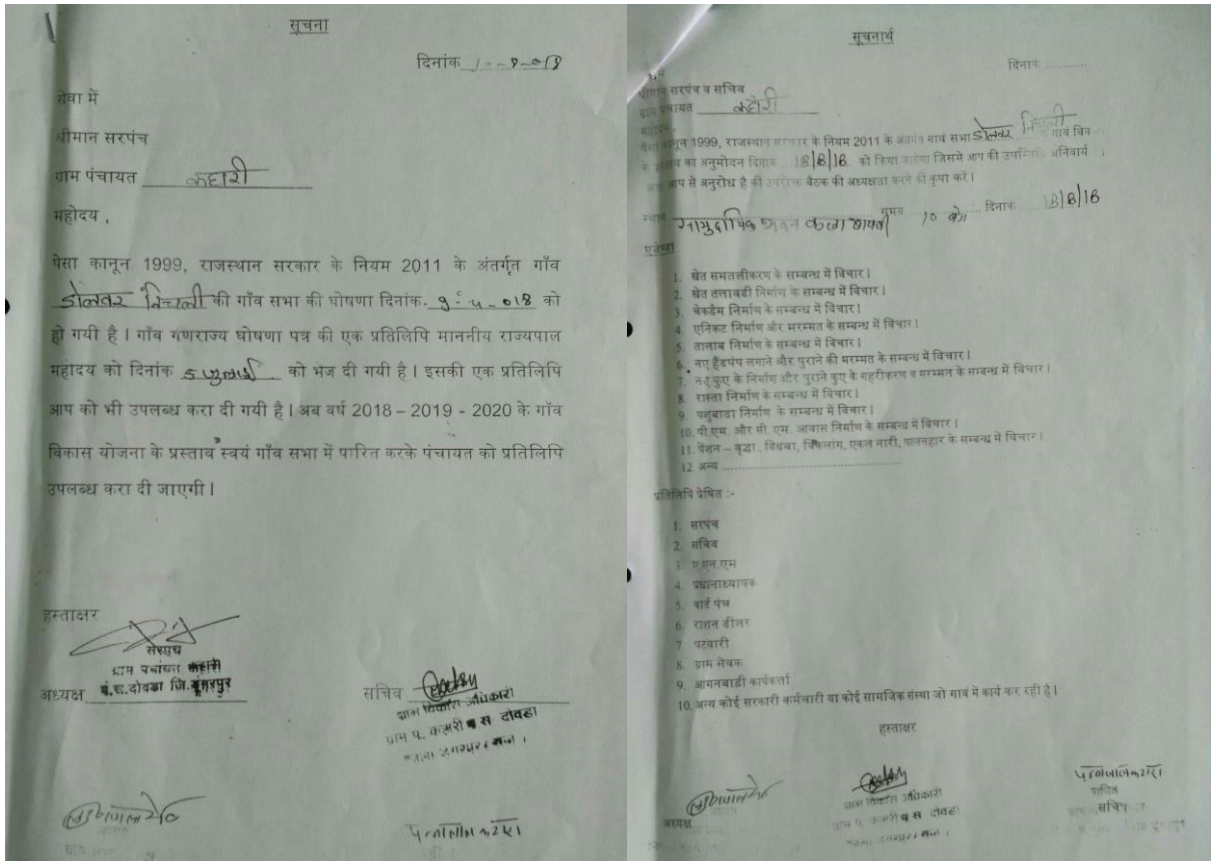 सूचना
दिनांक 1-8-018
सेवा में
श्रीमान सरपंच
ग्राम पंचायत कहारी
महोदय ,
पेसा कानून 1999, राजस्थान सरकार के नियम 2011 के अंतर्गृत गाँव
डोलवर निचली की गाँव सभा की घोषणा दिनांक. 9-4-018 को
हो गयी है। गाँव गणराज्य घोषणा पत्र की एक प्रतिलिपि माननीय राज्यपाल
महोदय को दिनांक 5 जुलाई को भेज दी गयी है। इसकी एक प्रतिलिपि
आप को भी उपलब्ध करा दी गयी है। अब वर्ष 2018 – 2019 - 2020 के गाँव
विकास योजना के प्रस्ताव स्वयं गाँव सभा में पारित करके पंचायत को प्रतिलिपि
उपलब्ध करा दी जाएगी।
हस्ताक्षर
सरपंच
ग्राम पंचायत कहारी
अध्यक्ष पं.स.दोवडा जि.डूंगरपुर
सचिव
ग्राम विकास अधिकारी
ग्राम प. स दोवडा
सूचनार्थ
दिनांक ............
श्रीमान सरपंच व सचिव
ग्राम पंचायत कहारी
महोदय ,
पेसा कानून 1999, राजस्थान सरकार के नियम 2011 के अंतर्गत गावं सभा डोलवर निचली गावं
का अनुमोदन दिनांक 18/8/18 को किया जायेगा जिसमे आप की उपस्थिति अनिवार्य
आप से अनुरोध है की उपरोक्त बैठक की अध्यक्षता करने की कृपा करें।
स्थान सामुदायिक भवन समय 10 बजे दिनांक 18/8/18
एजेण्डा
1. खेत समतलीकरण के सम्बन्ध में विचार।
2. खेत तलावडी निर्माण के सम्बन्ध में विचार।
3. चेकडैम निर्माण के सम्बन्ध में विचार।
4. एनिकट निर्माण और मरम्मत के सम्बन्ध में विचार।
5. तालाब निर्माण के सम्बन्ध में विचार।
6. नए हैंडपंप लगाने और पुराने की मरम्मत के सम्बन्ध में विचार।
7. नए कुए के निर्माण और पुराने कुए के गहरीकरण व मरम्मत के सम्बन्ध में विचार।
8. रास्ता निर्माण के सम्बन्ध में विचार।
9. पशुबाडा निर्माण के सम्बन्ध में विचार।
10. पी.एम. और सी. एम. आवास निर्माण के सम्बन्ध में विचार।
11. पेंशन – वृद्धा , विधवा, विकलांग, एकल नारी, पालनहार के सम्बन्ध में विचार।
12. अन्य ............................................
प्रतिलिपि प्रेषित :-
1. सरपंच
2. सचिव
3. ए.एन.एम
4. प्रधानाध्यापक
5. वार्ड पंच
6. राशन डीलर
7. पटवारी
8. ग्राम सेवक
9. आगनबाडी कार्यकर्ता
10. अन्य कोई सरकारी कर्मचारी या कोई सामजिक संस्था जो गावं में कार्य कर रही है।
हस्ताक्षर
अध्यक्ष
ग्राम विकास अधिकारी
स दोवडा
सचिव
सचिव